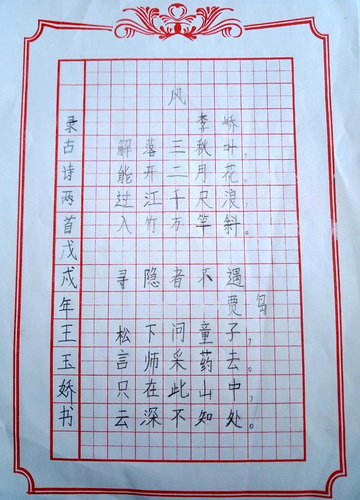 风
李峤
解落三秋叶，
能开二月花。
过江千尺浪，
入竹万竿斜。
寻隐者不遇
贾岛
松下问童子，
言师采药去。
只在此山中，
云深不知处。
录古诗两首戊戌年王玉娇书